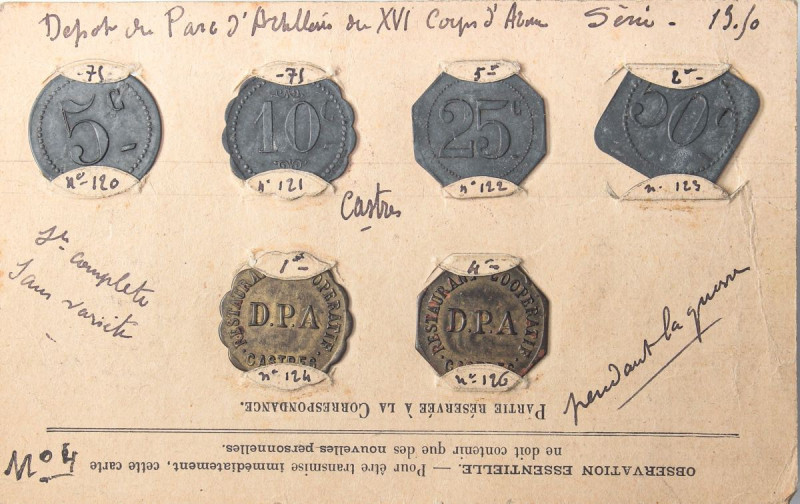 Depot du Parc d'Artillerie du XVI Corps d'Armée Série - 15.50
-75 -75 5- 2-
5c 10 25c 50
no-120 n° 121 n° 122 n. 123
Castres
complete
Sans variété
1- 4-
RESTAURANT COOPERATIF D.P.A CASTRES RESTAURANT COOPERATIF D.P.A CASTRES
n° 124 n° 126
pendant la guerre
PARTIE RÉSERVÉE À LA CORRESPONDANCE.
OBSERVATION ESSENTIELLE. — Pour être transmise immédiatement, cette carte
ne doit contenir que des nouvelles personnelles.
No 4